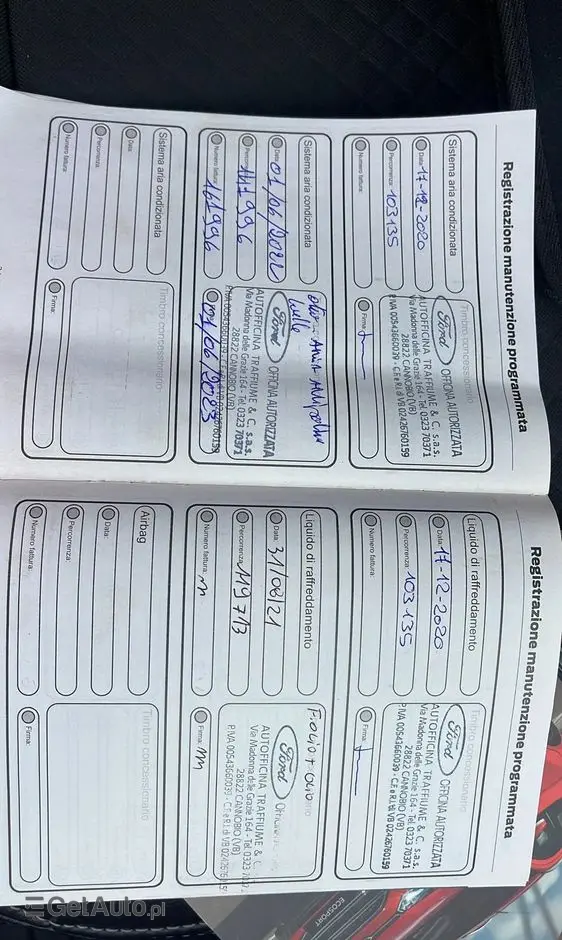 Registrazione manutenzione programmata
Sistema aria condizionata
Data: 17-12-2020
Percorrenza: 103135
Numero fattura:
Timbro concessionario
Ford OFFICINA AUTORIZZATA
AUTOFFICINA TRAFFIUME & C. s.a.s.
Via Madonna delle Grazie 164 - Tel. 0323 70371
28822 CANNOBIO (VB)
P.IVA 00543660039 - C.F. e R.I. di VB 02426760159
Firma:
Sistema aria condizionata
Data: 01/06/2022
Percorrenza: 141996
Numero fattura: 161996
olio
Ford OFFICINA AUTORIZZATA
AUTOFFICINA TRAFFIUME & C. s.a.s.
Via Madonna delle Grazie 164 - Tel. 0323 70371
28822 CANNOBIO (VB)
01/06/2023
Sistema aria condizionata
Data:
Percorrenza:
Numero fattura:
Timbro concessionario
Firma:
Registrazione manutenzione programmata
Liquido di raffreddamento
Data: 17-12-2020
Percorrenza: 103135
Numero fattura:
Timbro concessionario
Ford OFFICINA AUTORIZZATA
AUTOFFICINA TRAFFIUME & C. s.a.s.
Via Madonna delle Grazie 164 - Tel. 0323 70371
28822 CANNOBIO (VB)
P.IVA 00543660039 - C.F. e R.I. di VB 02426760159
Firma:
Liquido di raffreddamento
Data: 31/08/21
Percorrenza: 119713
Numero fattura:
F.olio + olio
Ford
AUTOFFICINA TRAFFIUME & C.
Via Madonna delle Grazie 164 - Tel. 0323
28822 CANNOBIO (VB)
P.IVA 00543660039 - C.F. e R.I. di VB
Firma:
Airbag
Data:
Percorrenza:
Numero fattura:
Timbro concessionario
Firma:
ECOSPORT
GetAuto.pl